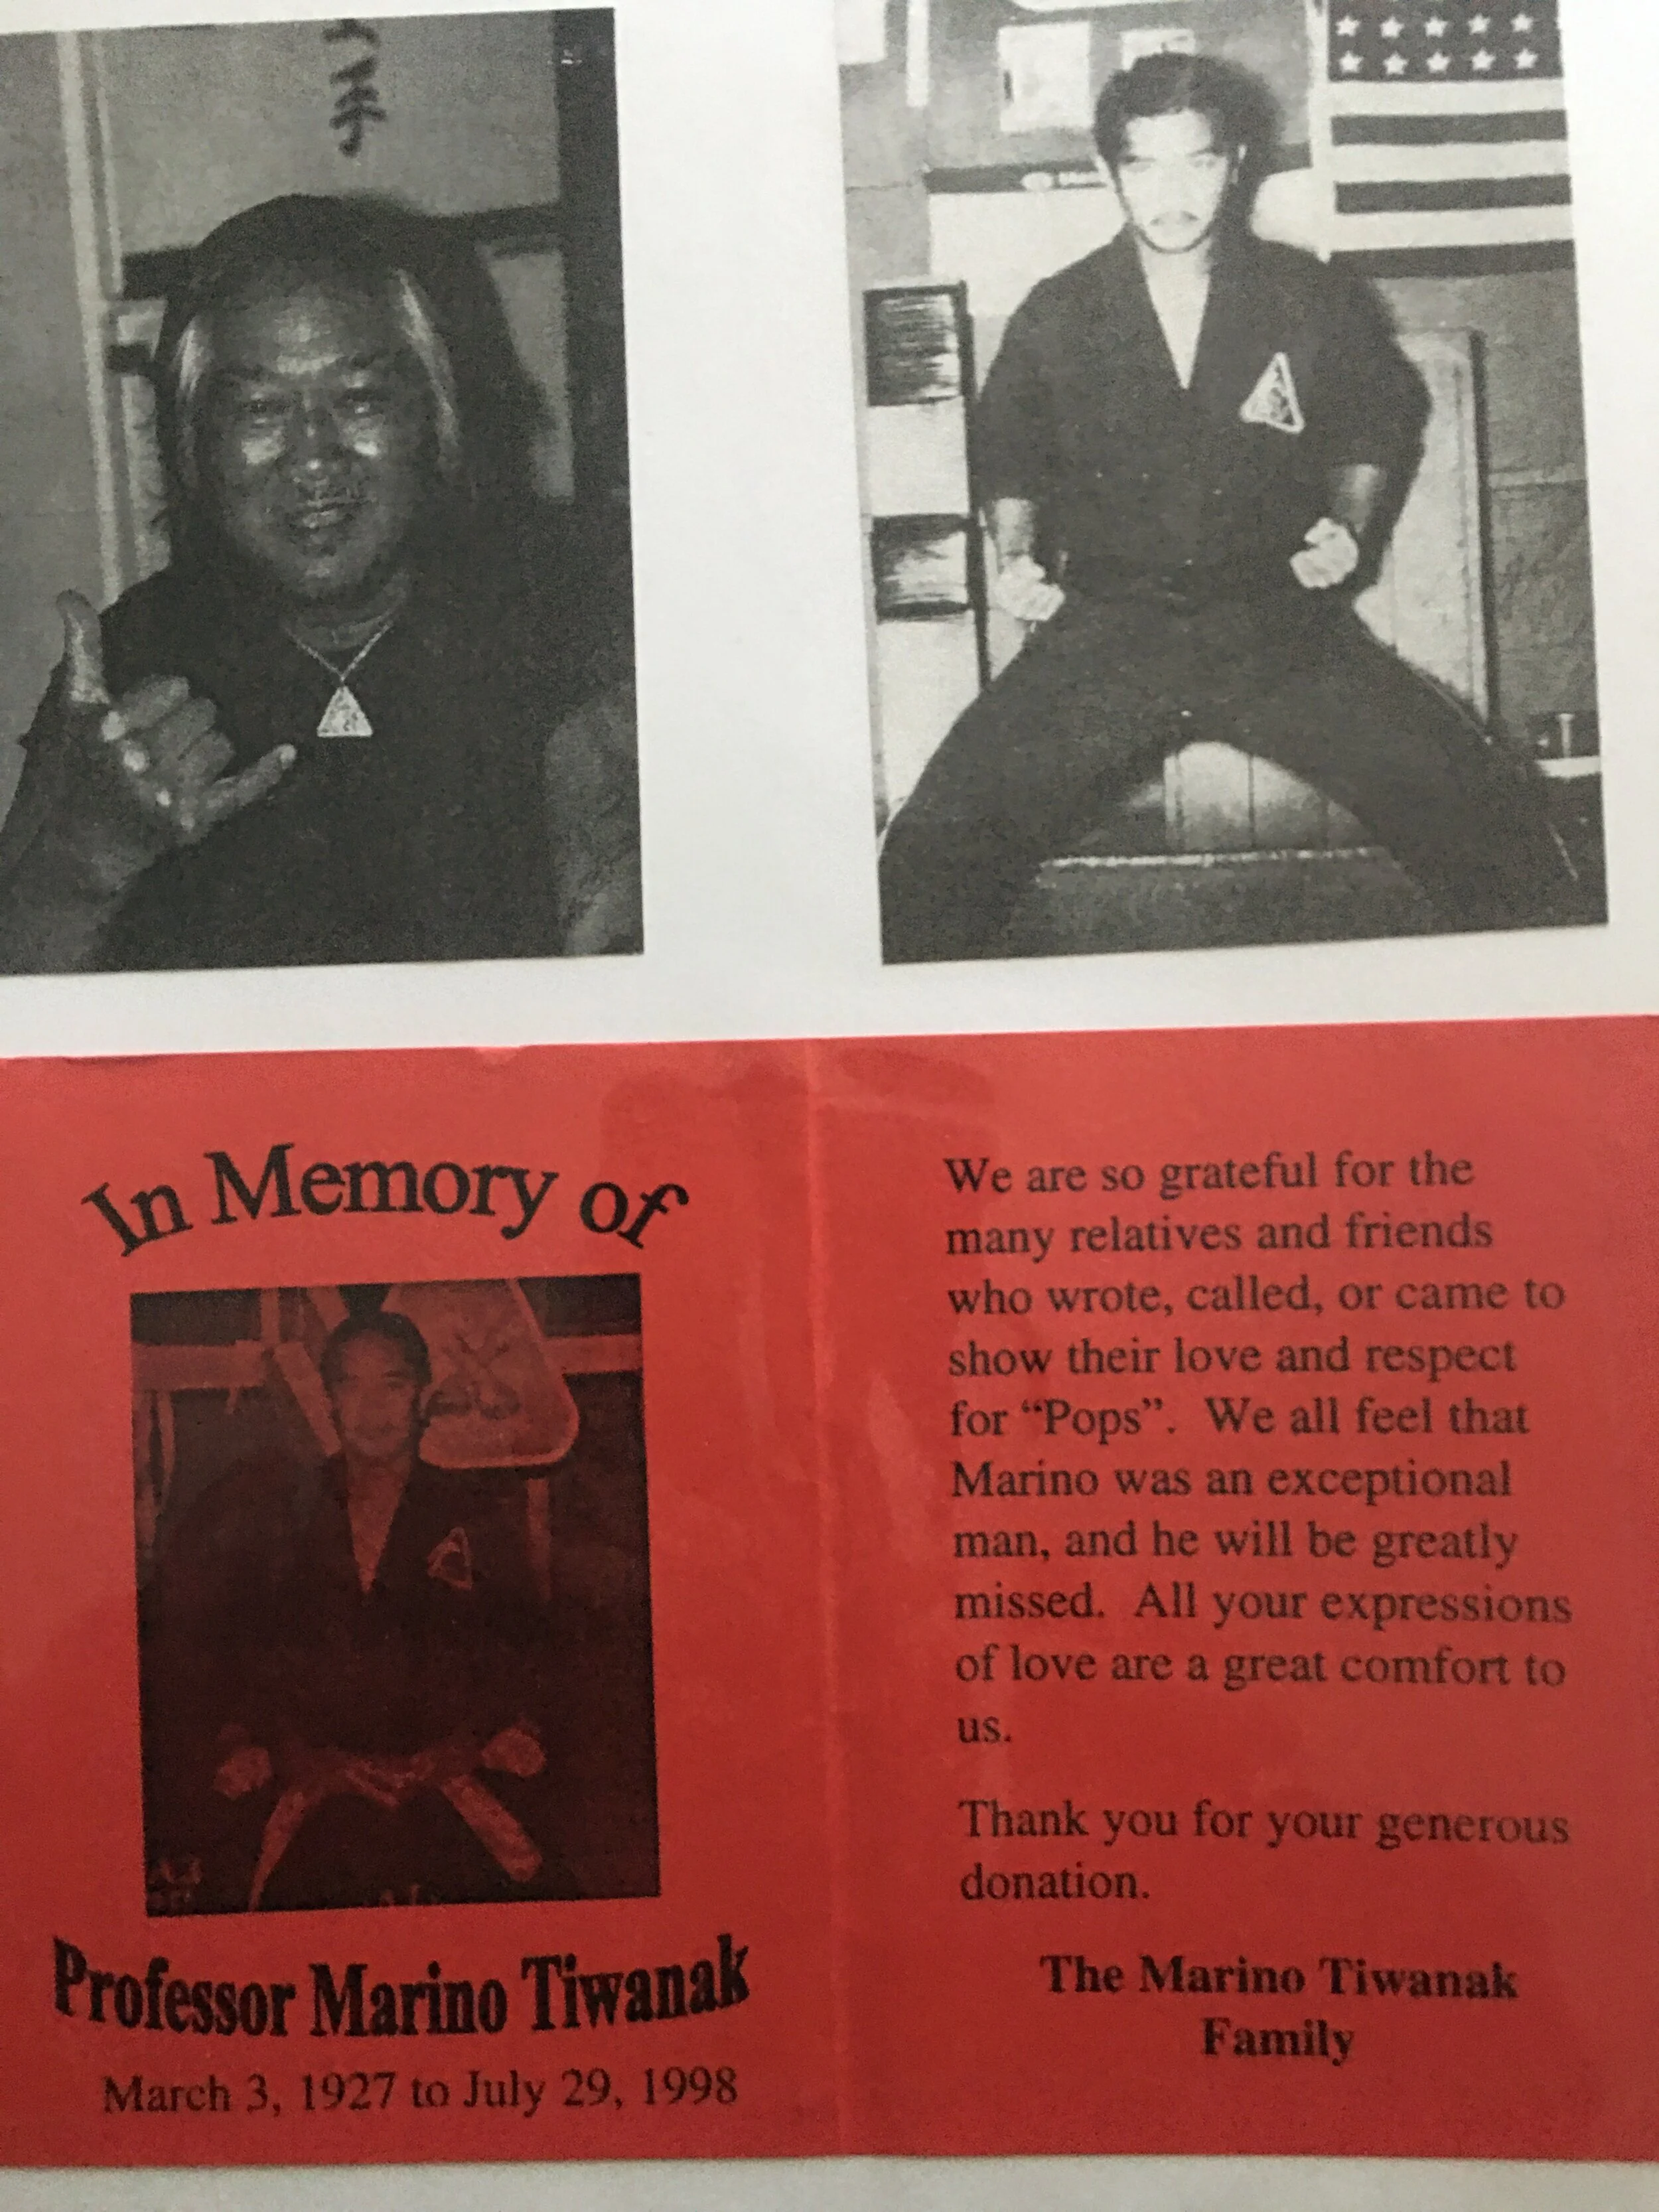 手
In Memory of
Professor Marino Tiwanak
March 3, 1927 to July 29, 1998
We are so grateful for the
many relatives and friends
who wrote, called, or came to
show their love and respect
for “Pops”.  We all feel that
Marino was an exceptional
man, and he will be greatly
missed.  All your expressions
of love are a great comfort to
us.
Thank you for your generous
donation.
The Marino Tiwanak
Family